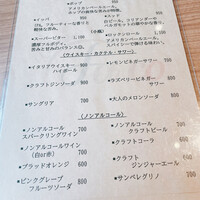 •ポップ
•インパ
•スーパービター 900
濃厚フルボディ、
苦みと甘みのバランス◎。
(小瓶)
•ロックンロール 900
アメリカンペールエール。
スパイシーで深い味わい。
〈ウイスキー・カクテル・サワー〉
•イタリアウイスキー 800
ハイボール
•クラフトジンソーダ 800
•サングリア 700
•レモンビネガーサワー 800
•ラズベリービネガー 800
サワー
•大人のメロンソーダ 800
〈ノンアルコール〉
•ノンアルコール 800
スパークリングワイン
•ノンアルコールワイン 700
(白or赤)
•ブラッドオレンジ 600
•ピンクグレープ 700
フルーツソーダ
•ノンアルコール 700
クラフトビール
•クラフトコーラ 600
•クラフト 600
ジンジャーエール
•サンペレグリノ 700